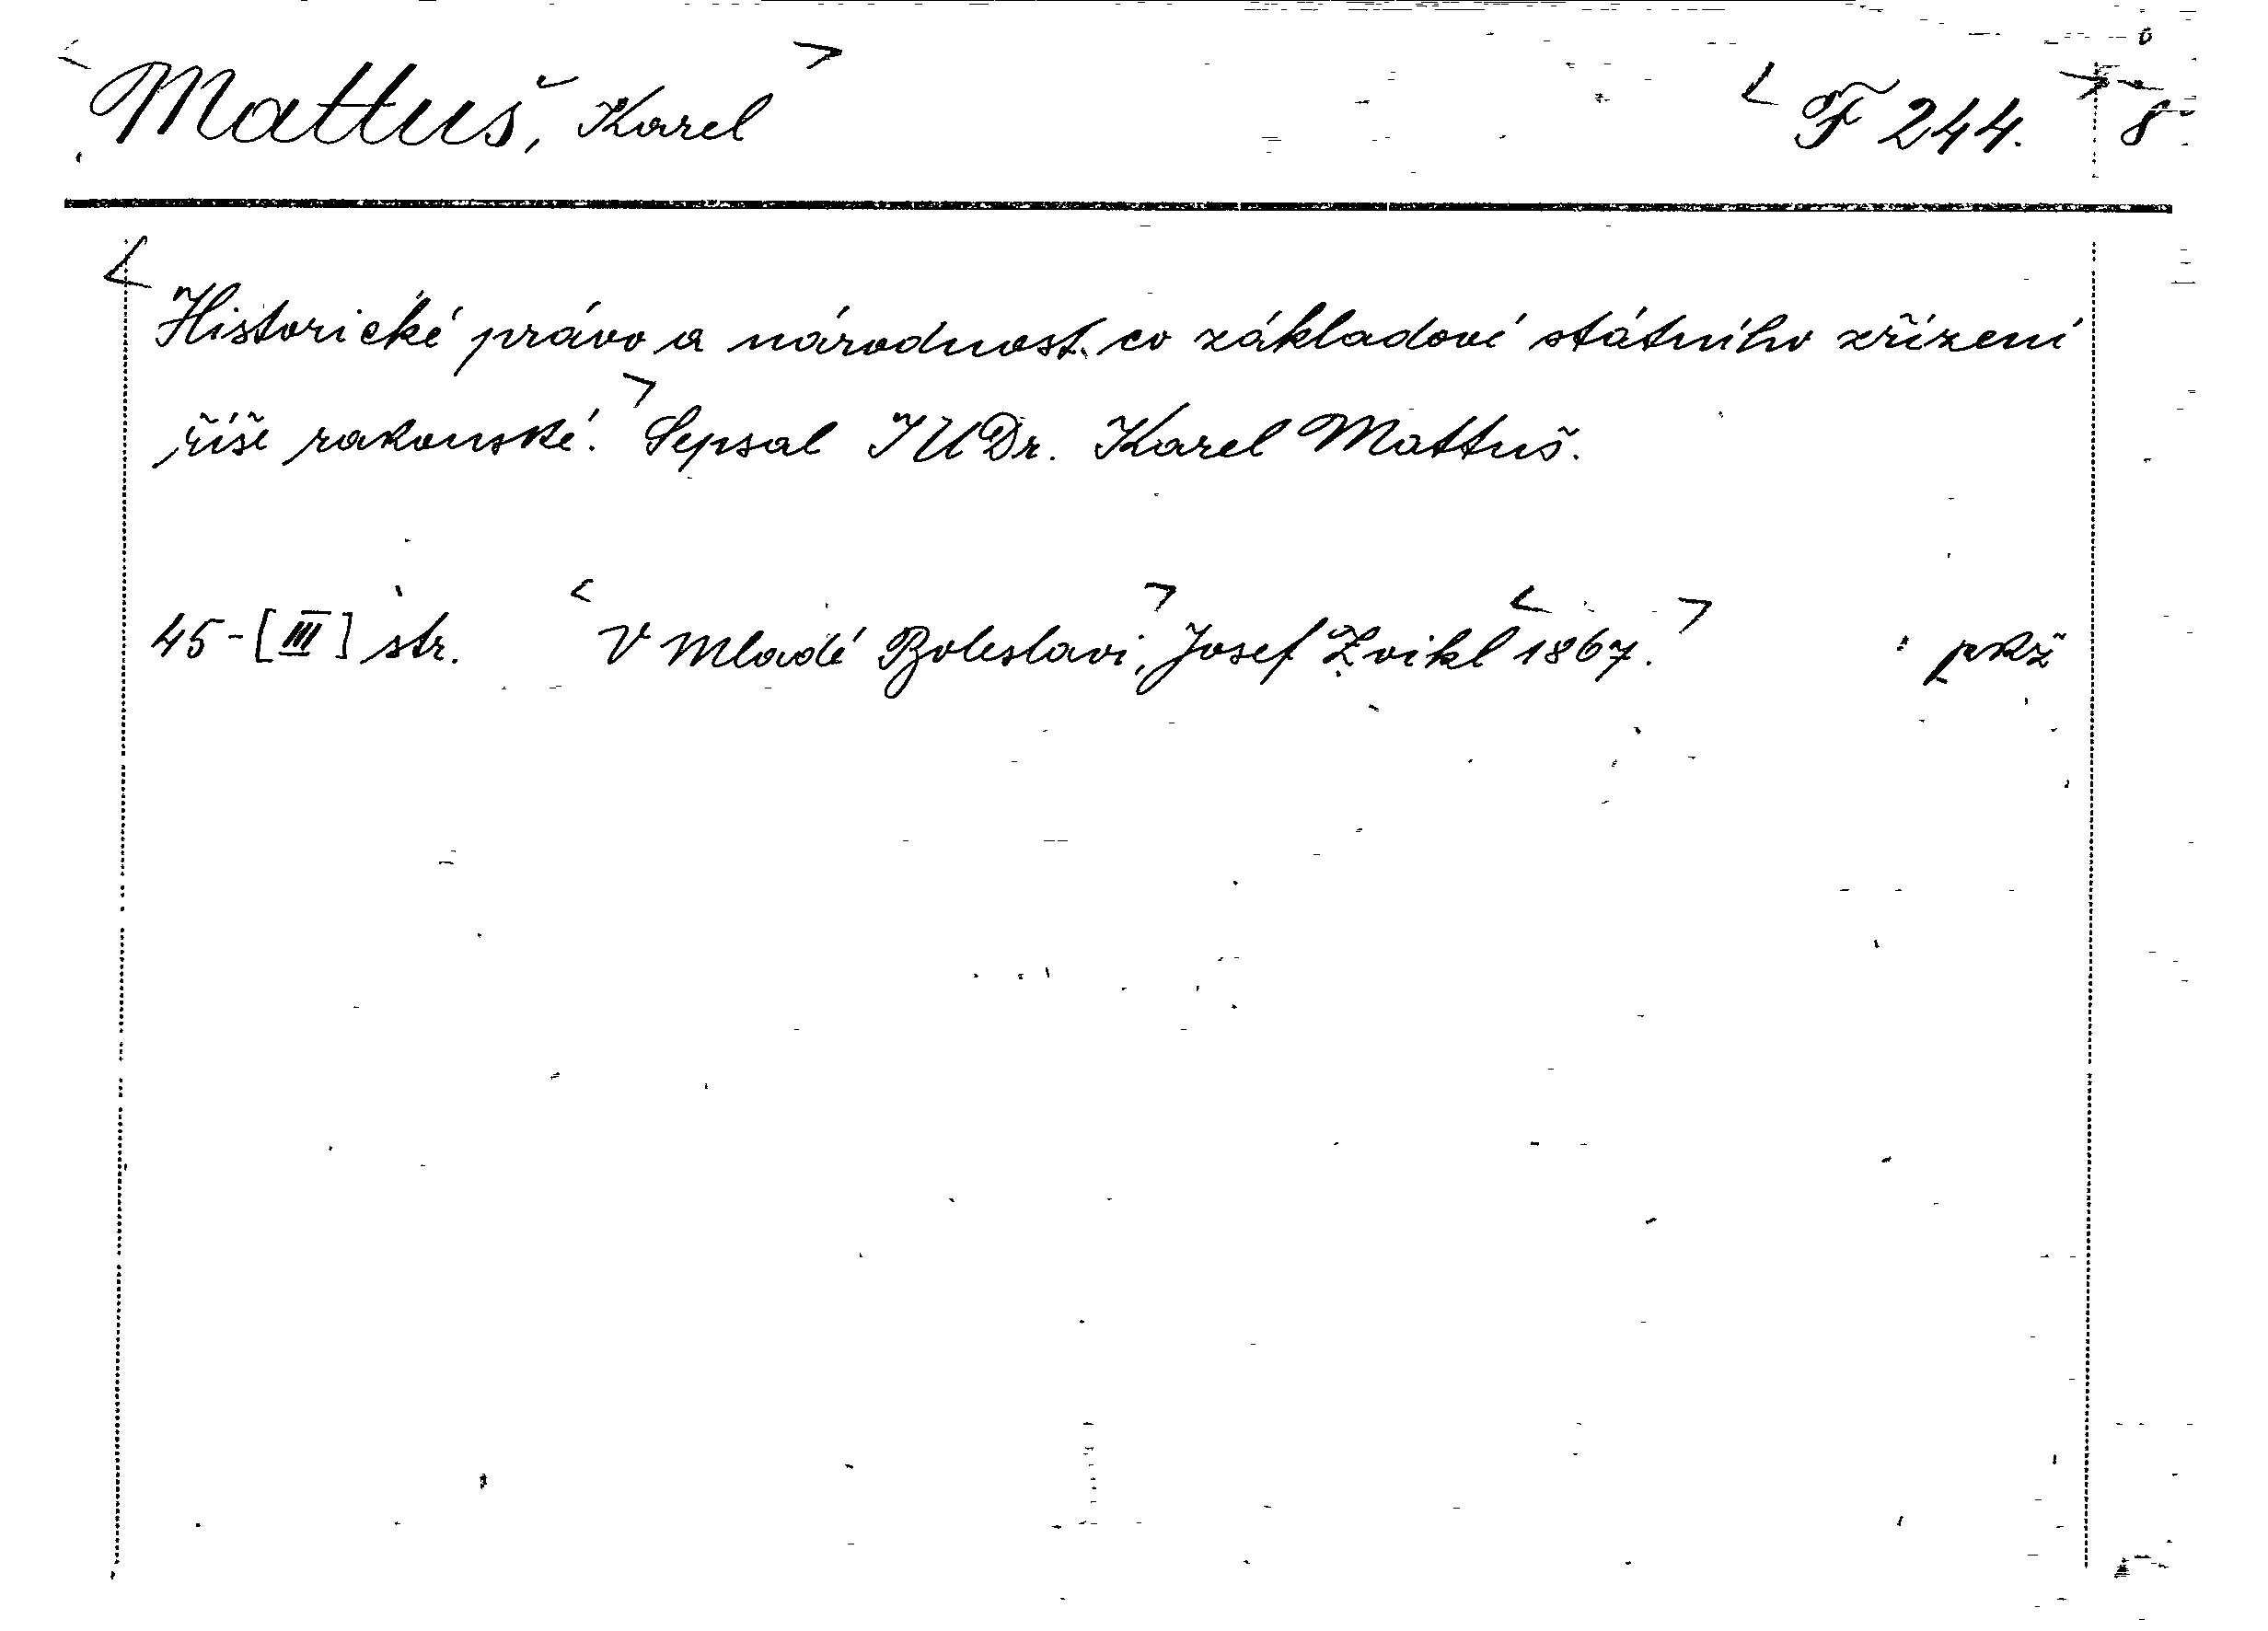 Mattuš, Karel F 244. 8°
Historické právo a národnost co základové státního zřízení
říše rakouské. Sepsal JUDr. Karel Mattuš.
45-[III] str. V Mladé Boleslavi, Josef Zvikl 1867. pkž